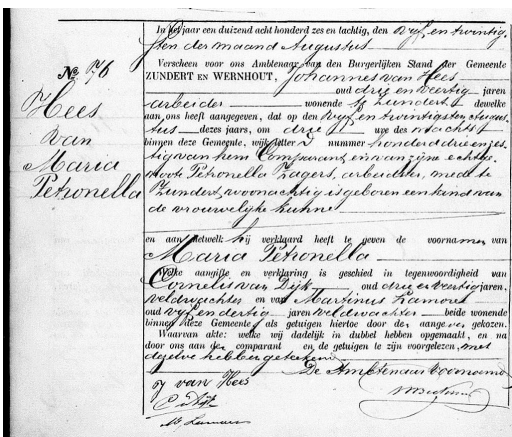 No. 76
Hees
van
Maria
Petronella
In het jaar een duizend acht honderd zes en tachtig, den vijf en twintig
sten der maand Augustus
Verscheen voor ons Ambtenaar van den Burgerlijken Stand der Gemeente
ZUNDERT EN WERNHOUT, Johannes van Hees
oud drie en veertig jaren
arbeider wonende te Zundert dewelke
aan ons heeft aangegeven, dat op den vijf en twintigsten Augus
tus dezes jaars, om drie ure des nachts
binnen deze Gemeente, wijk letter nummer honderd drie en zes
tig van hem Comparant, en van zijne echtge
noote Petronella Zagers, arbeidster, mede te
Zundert woonachtig is geboren een kind van
de vrouwelijke kunne
en aan hetwelk hij verklaard heeft te geven de voornamen van
Maria Petronella
Welke aangifte en verklaring is geschied in tegenwoordigheid van
Cornelis van Dijk oud drie en veertig jaren,
veldwachter en van Martinus Lamoré
oud vijf en dertig jaren veldwachter beide wonende
binnen deze Gemeente, als getuigen hiertoe door den aangever gekozen.
Waarvan akte: welke wij dadelijk in dubbel hebben opgemaakt, en na
door ons aan den comparant en de getuigen te zijn voorgelezen, met
dezelve hebben geteekend
De Ambtenaar voornoemd
J van Hees
C v Dijk